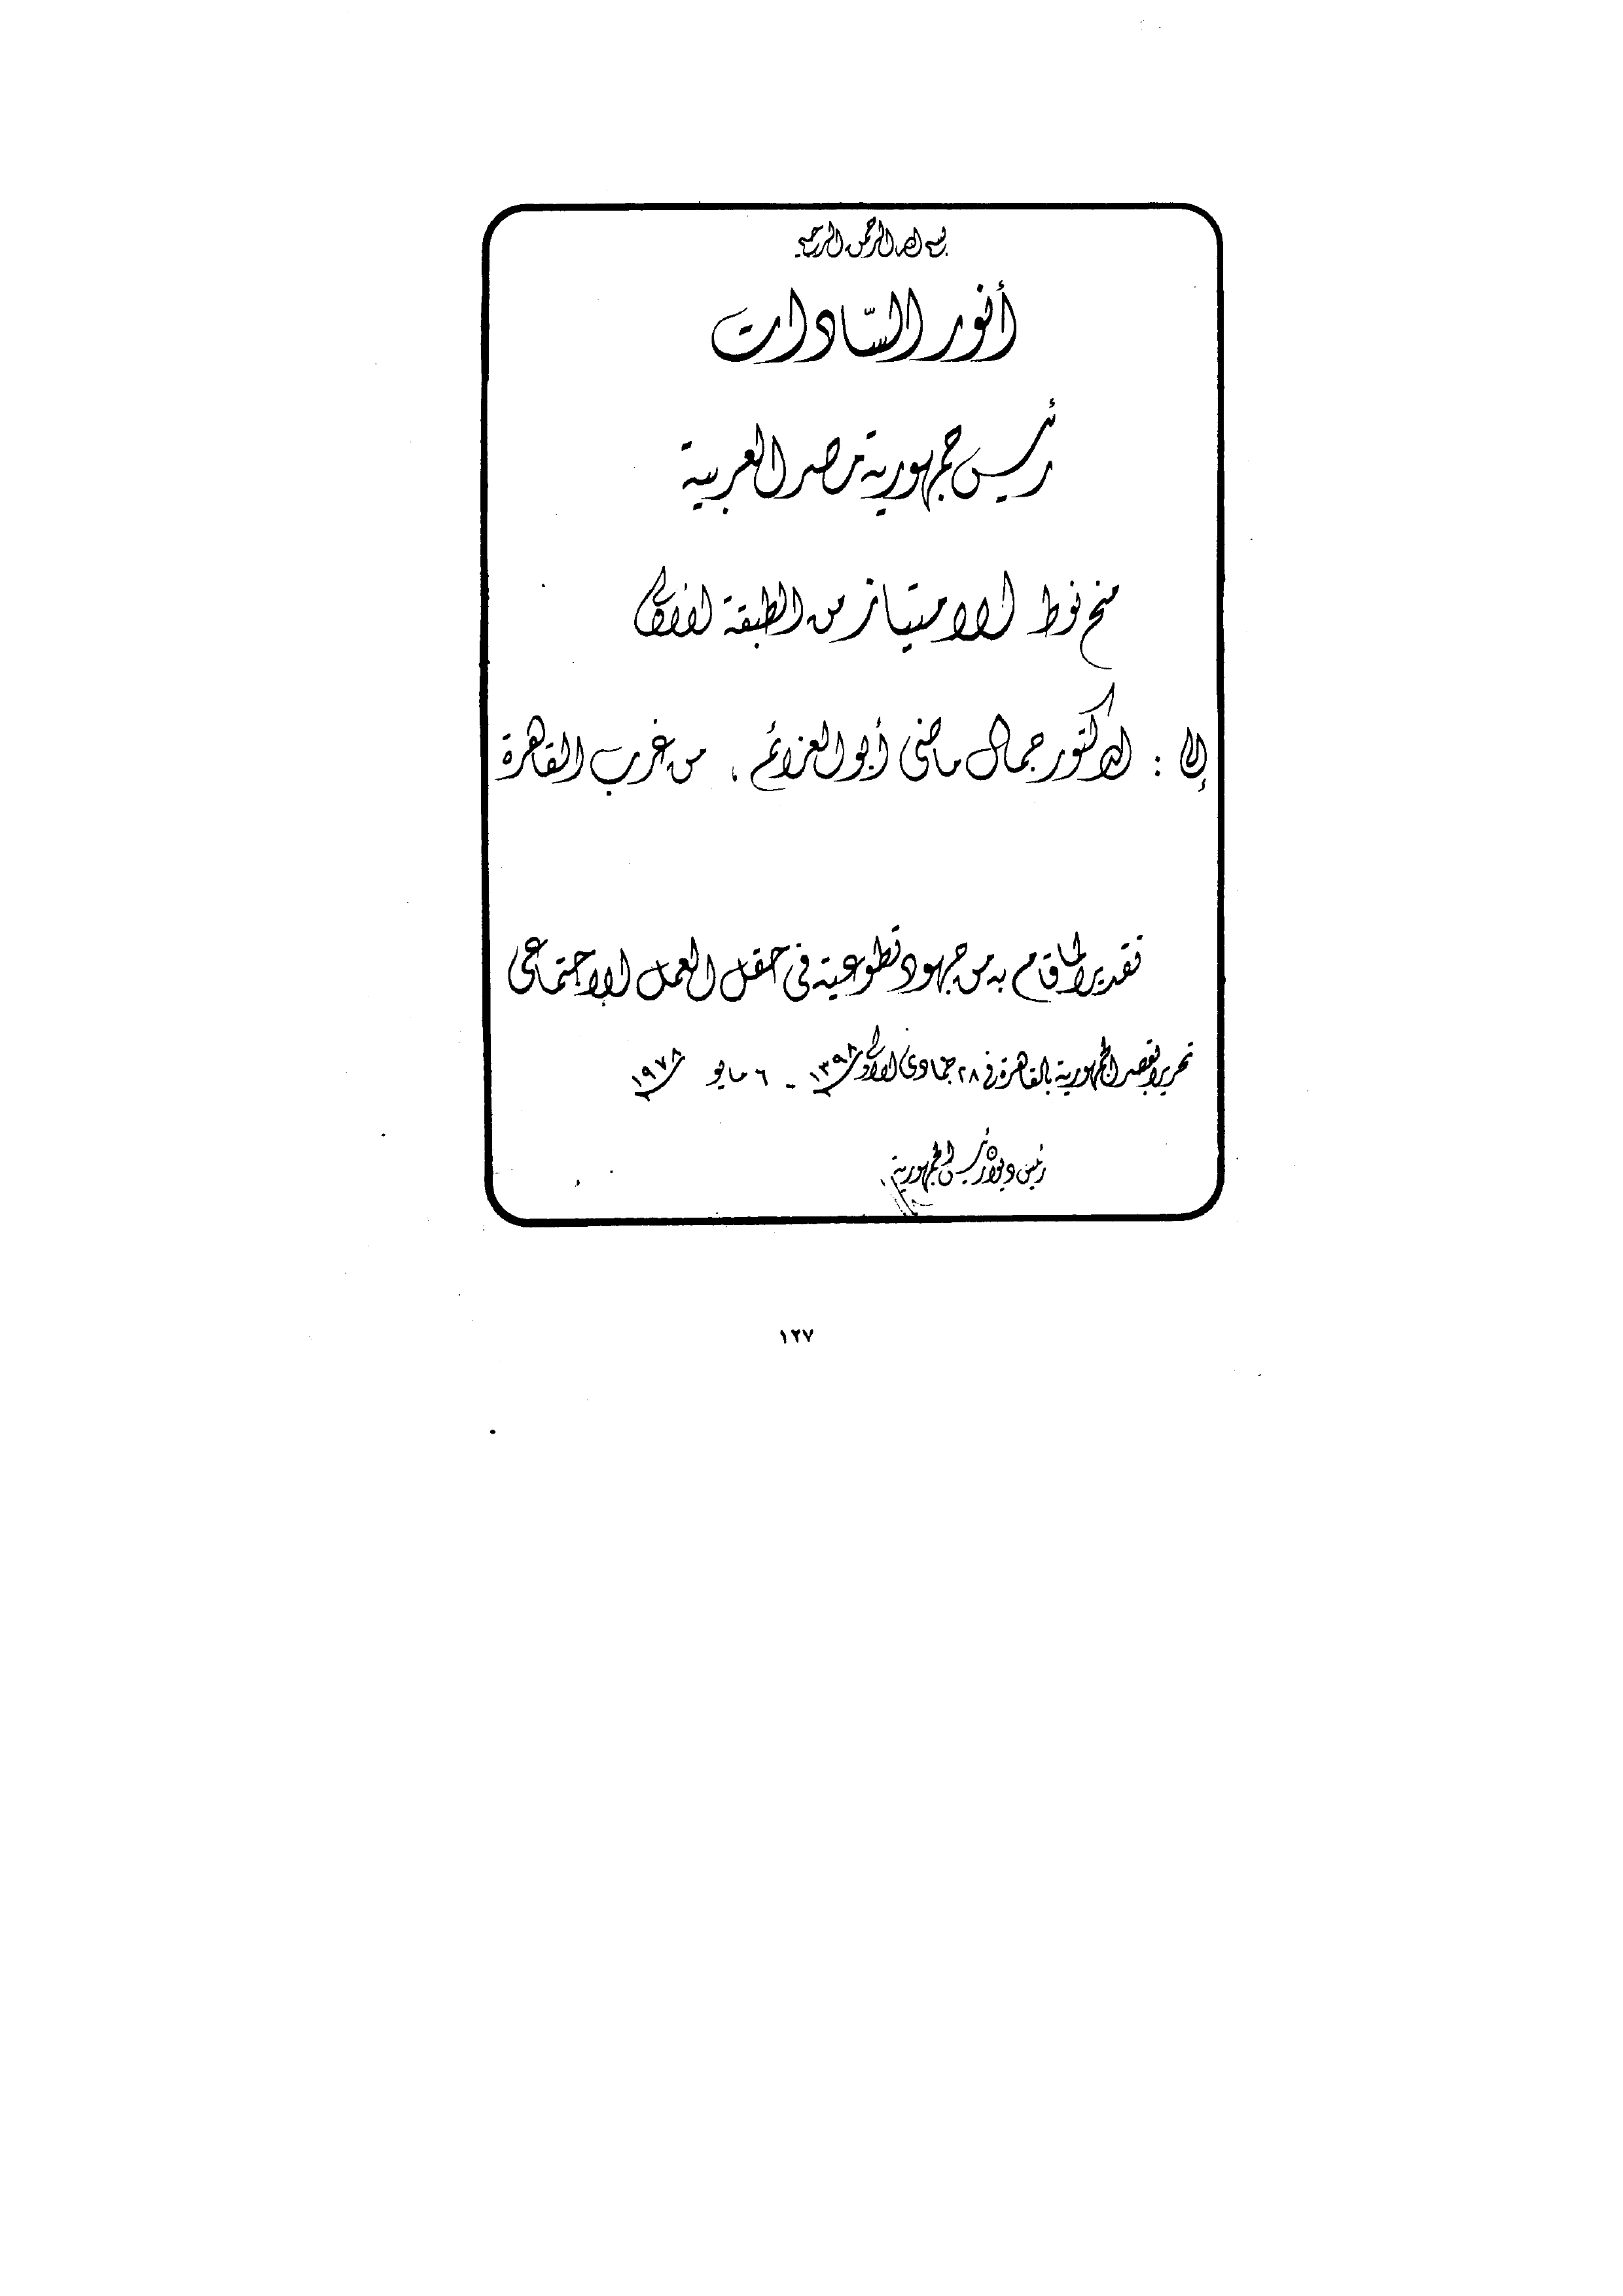 بسم الله الرحمن الرحيم
أنور السّادات
رئيس جمهورية مصر العربية
منح نوط الامتياز من الطبقة الأولى
إلى : الدكتور جمال ماضى أبو العزائم . من غرب القاهرة
تقديرا لما قام به من جهود تطوعية فى حقل العمل الاجتماعى
تحريرا بقصر الجمهورية بالقاهرة فى ٢٨ جمادى الأولى ١٣٩٨ - ٦ مايو ١٩٧٨
رئيس ديوان رئيس الجمهورية
١٢٧